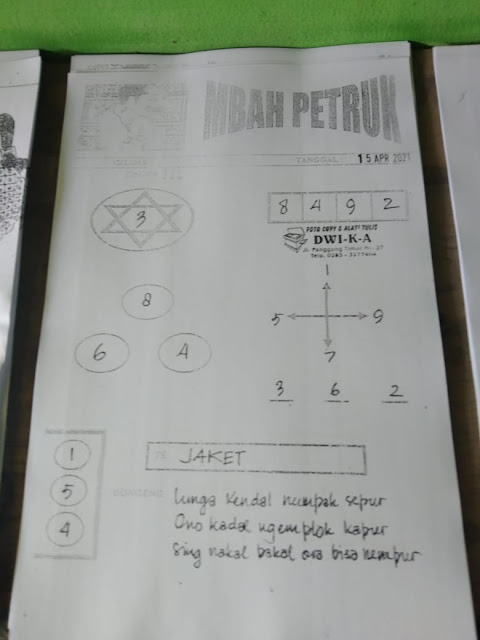 MBAH PETRUK
TANGGAL : 15 APR 2021
3
8 4 9 2
FOTO COPY & ALAT TULIS
DWI-K-A
1
8
5 9
6 4
7
3 6 2
1
TS JAKET
5
lunga Kendal numpak sepur
4
Ono kadal ngemplok kapur
Sing nakal bakal ora bisa nempur